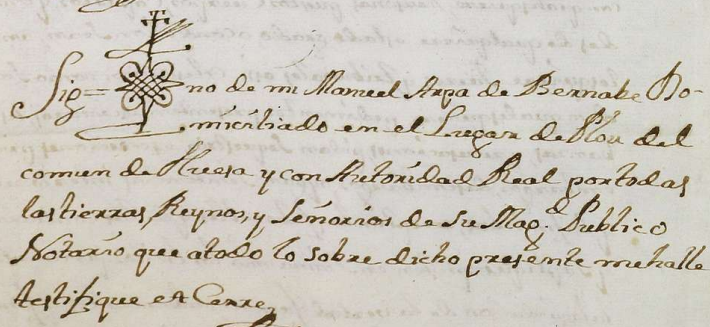 Sig= no de mi Manuel Arpa de Bernabe Do-
miciliado en el Lugar de Plou del
comun de Huesa y con Autoridad Real por todas
las tierras, Reynos, y Señorios de Su Mag.d Publico
Notario que atodo lo sobre dicho presente mehalle
testifique et Cerre,